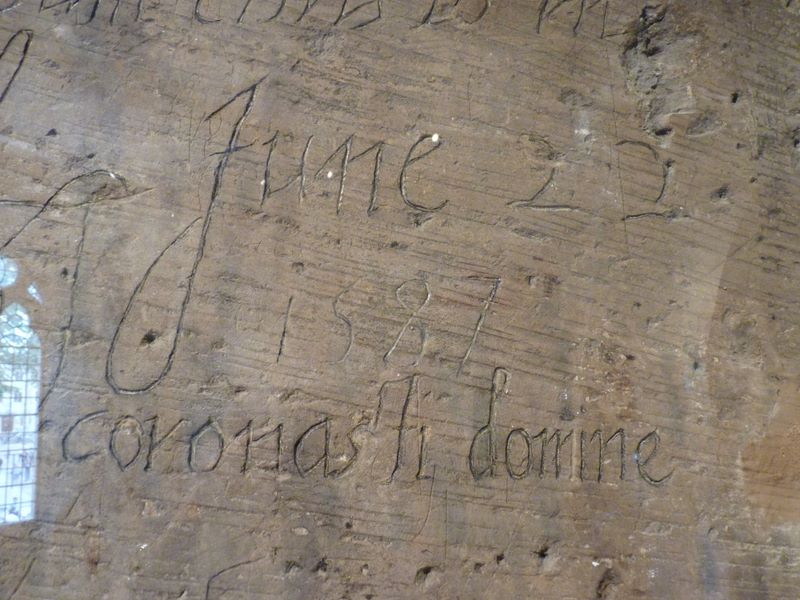 June 22
1587
coronasti domine